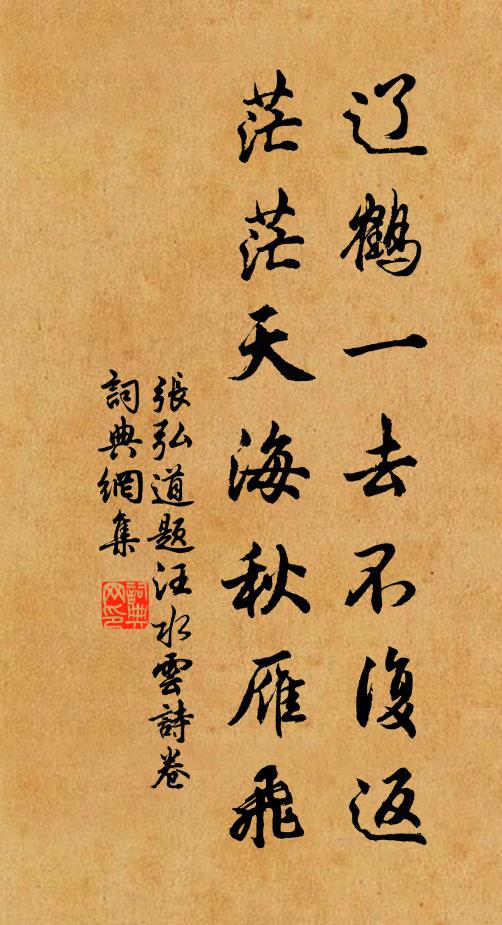 辽鹤一去不復返
茫茫天海秋雁飛
張弘道题汪水雲詩卷
詞典網集
詞典网印